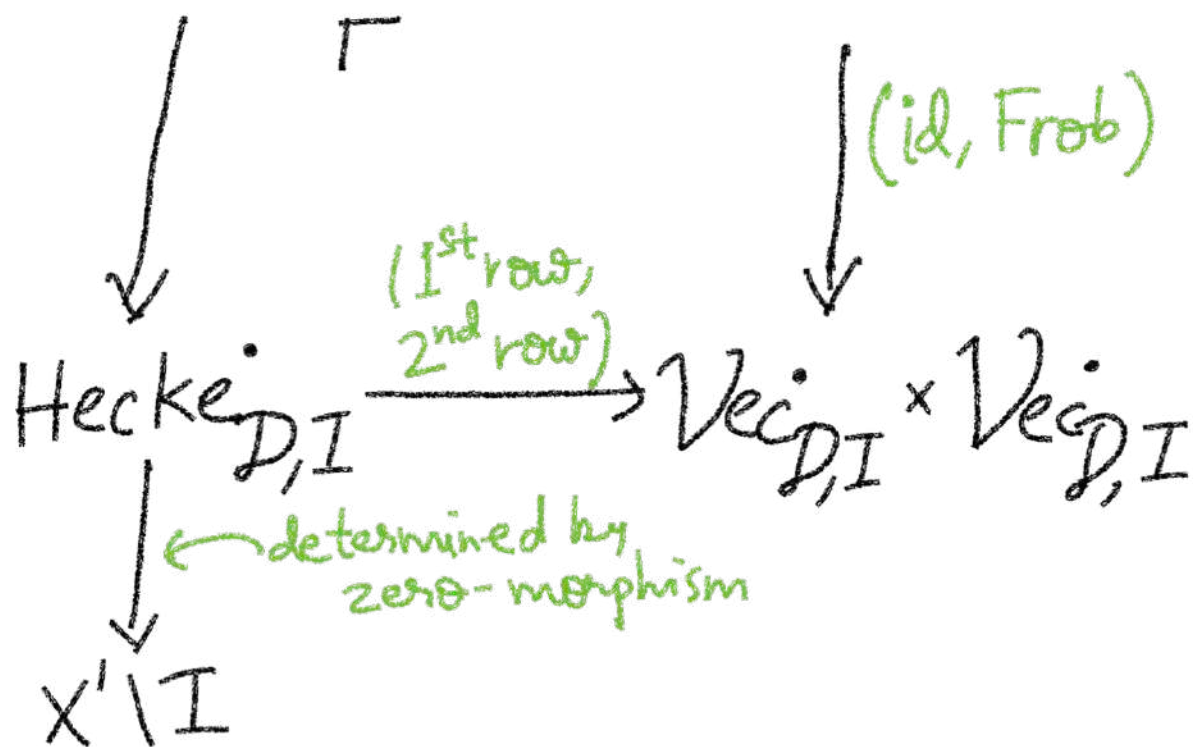 (id, Frob)
(1st row,
2nd row)
Hecke˙D,I
Vec˙D,I × Vec˙D,I
determined by
zero-morphism
X'\I